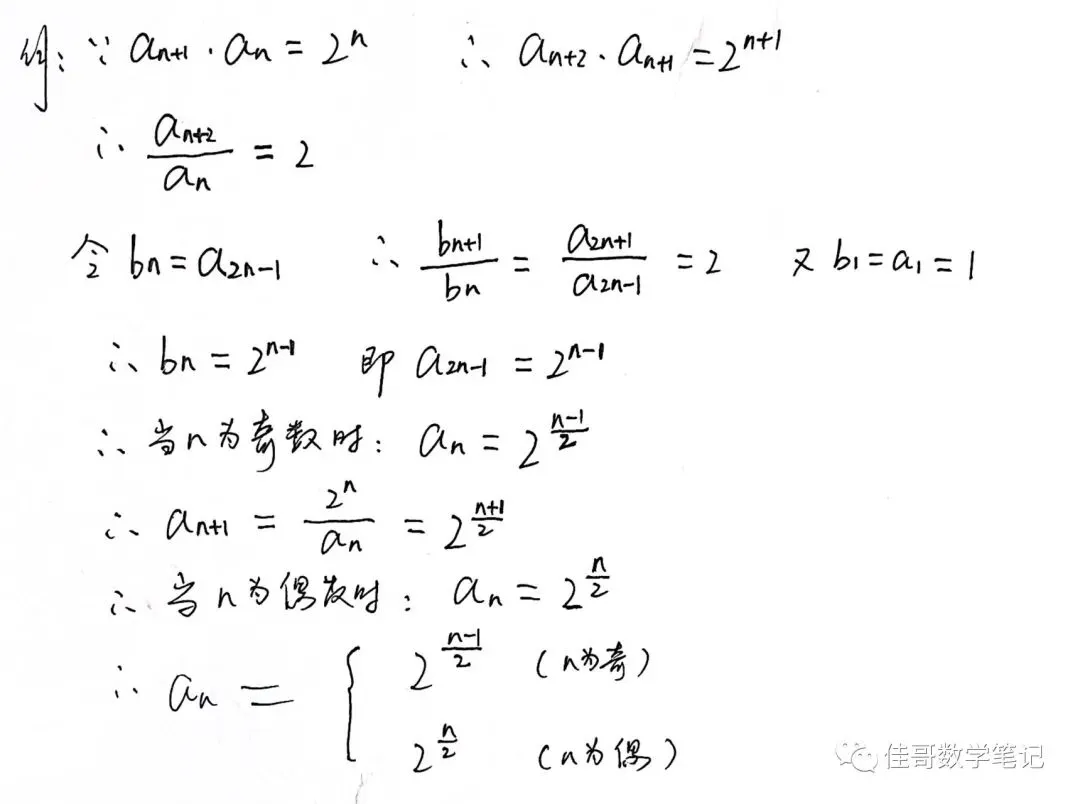 解: ∵ aₙ₊₁ · aₙ = 2ⁿ ∴ aₙ₊₂ · aₙ₊₁ = 2ⁿ⁺¹
∴ aₙ₊₂/aₙ = 2
令 bₙ = a₂ₙ₋₁ ∴ bₙ₊₁/bₙ = a₂ₙ₊₁/a₂ₙ₋₁ = 2 又 b₁ = a₁ = 1
∴ bₙ = 2ⁿ⁻¹ 即 a₂ₙ₋₁ = 2ⁿ⁻¹
∴ 当n为奇数时: aₙ = 2^((n-1)/2)
∴ aₙ₊₁ = 2ⁿ/aₙ = 2^((n+1)/2)
∴ 当n为偶数时: aₙ = 2^(n/2)
∴ aₙ = { 2^((n-1)/2) (n为奇)
2^(n/2) (n为偶)
佳哥数学笔记